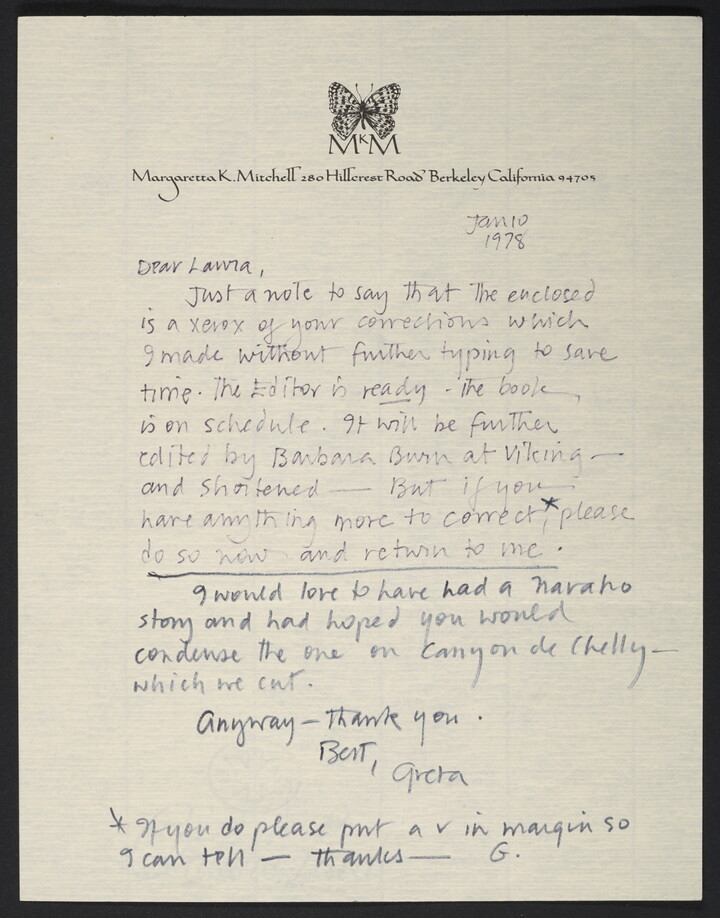 MKM
Margaretta K. Mitchell 280 Hillcrest Road Berkeley California 94705
Jan 10
1978
Dear Laura,
Just a note to say that the enclosed
is a xerox of your corrections which
I made without further typing to save
time. The Editor is ready - the book
is on schedule. It will be further
edited by Barbara Burn at Viking —
and shortened — But if you
have anything more to correct,* please
do so now and return to me.
I would love to have had a Navaho
story and had hoped you would
condense the one on Canyon de Chelly —
which we cut.
Anyway — thank you.
Best,
Greta
* If you do please put a v in margin so
I can tell — thanks — G.